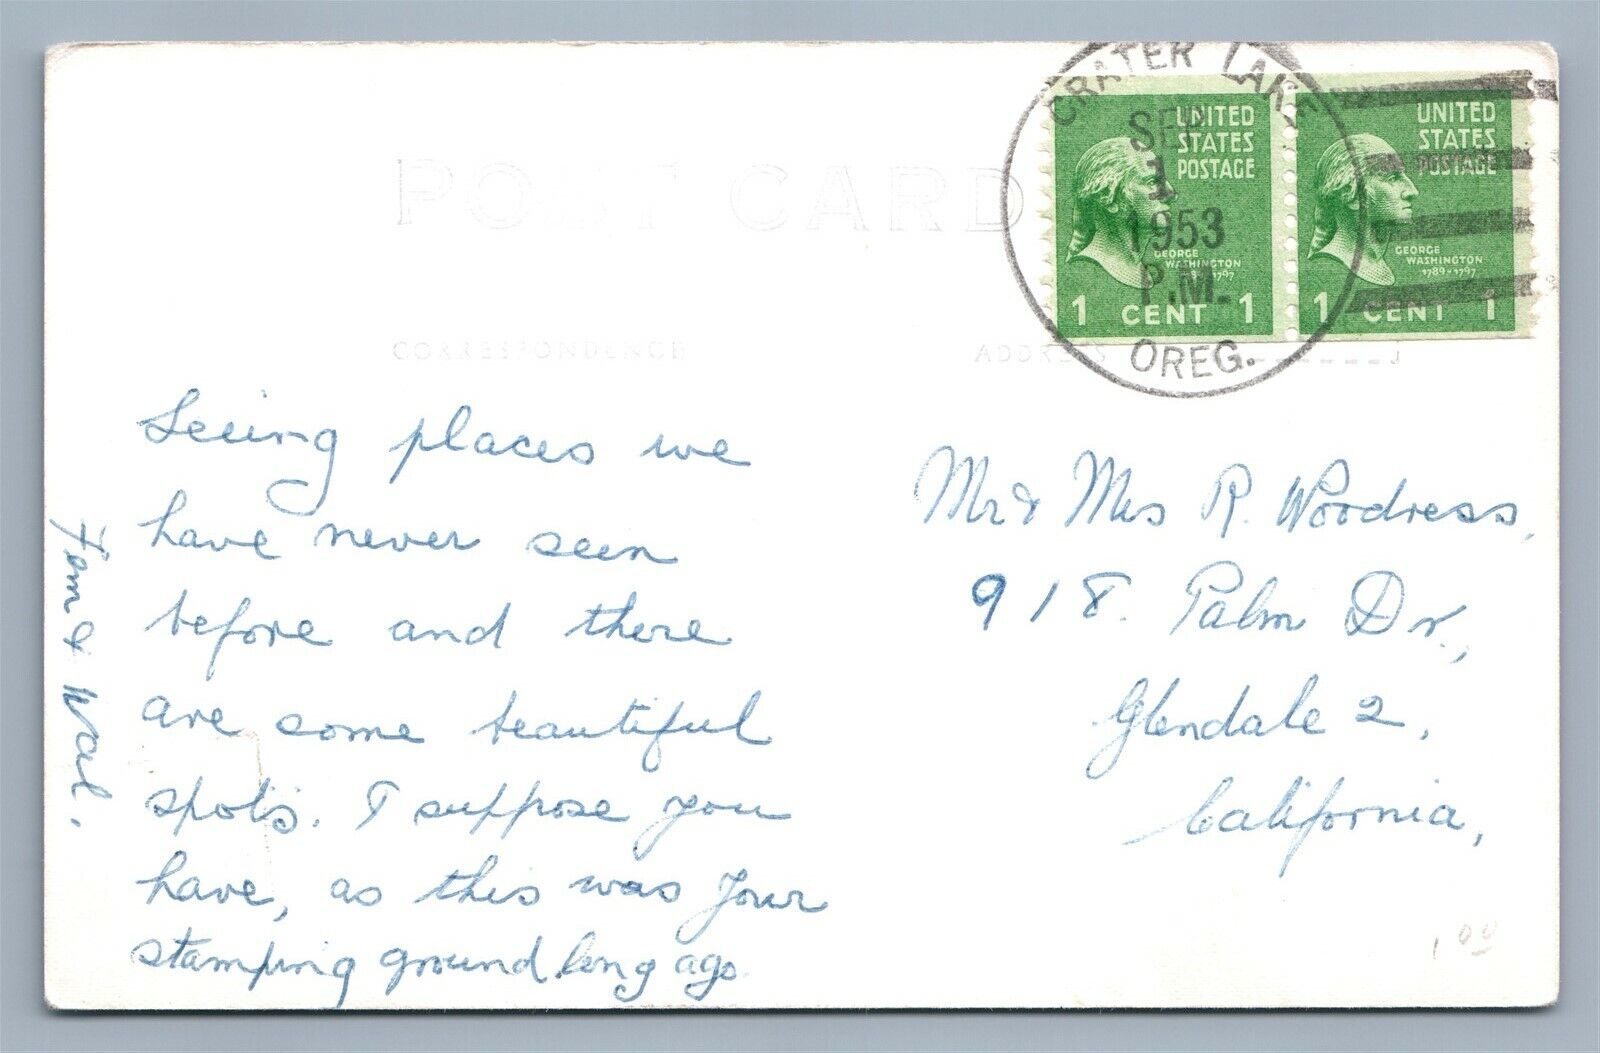 CRATER LAKE
SEP
1
1953
P.M.
OREG.
UNITED
STATES
POSTAGE
GEORGE
WASHINGTON
1789-1797
1 CENT 1
UNITED
STATES
POSTAGE
GEORGE
WASHINGTON
1789-1797
1 CENT 1
POST CARD
CORRESPONDENCE
ADDRESS
Seeing places we
have never seen
before and there
are some beautiful
spots. I suppose you
have, as this was your
stamping ground long ago.
Tom &
Mr & Mrs R. Woodress,
918. Palm Dr.,
Glendale 2,
California,
1.00